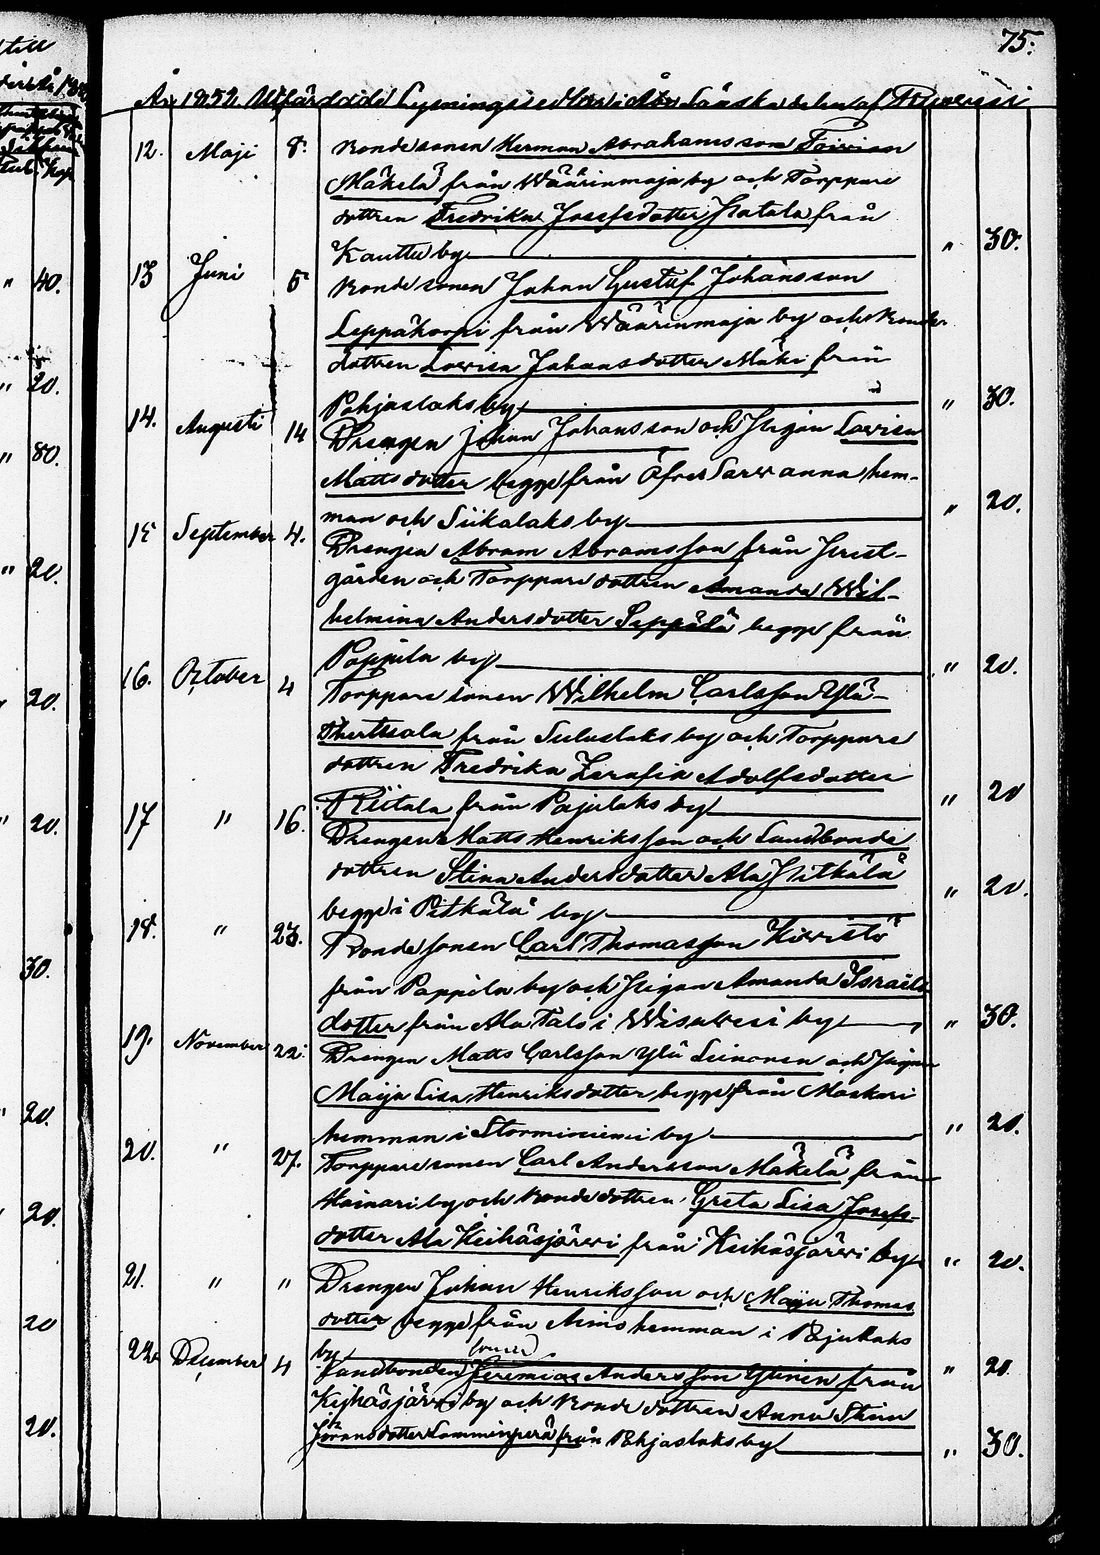 75.
År 1852 Utfärdade Lysningssedlar i Åbo Länska delen af Ruovesi
12. Maji 8. Bondesonen Herman Abrahamsson Toivian
Mäkelä från Wäärinmaja by och Torppare
dottren Fredrika Josefsdotter Hatala från
Kauttu by " 30.
13 Juni 5 Bondesonen Johan Gustaf Johansson
Leppäkorpi från Wäärinmaja by och Bonde
dottren Lovisa Johansdotter Mäki från
Pohjaslaks by " 30.
14. Augusti 14 Drengen Johan Johansson och Pigan Lovisa
Mattsdotter begge från Öfver Sarvanna hem-
man och Siikalaks by " 20.
15 September 4. Drengen Abram Abramsson från Prest-
gården och Torppare dottren Amanda Wil-
helmina Andersdotter Seppälä begge från
Pappila by " 20.
16. October 4 Torppare sonen Wilhelm Carlsson Ylä-
från by och Torppare
dottren Fredrika Serafia Adolfsdotter
Riitala från Pajulaks by " 20
17 " 16. Drengen Matts Henriksson och Landbonde
dottren Stina Andersdotter Ala Pitkälä
begge i Pitkälä by " 20.
18. " 23. Bondesonen Carl Thomasson Kivistö
från Pappila by och Pigan Amanda Israels
dotter från Ala Tals i Wisuvesi by " 30.
19. November 22. Drengen Matts Carlsson Ylä Leinonen och Pigan
Maija Lisa Henriksdotter begge från Maskari
hemman i Storminiemi by " 20.
20. " 27. Torpparesonen Carl Andersson Mäkelä från
Hainari by och Bondedottren Greta Lisa Josefs-
dotter Ala Keihäsjärvi från Keihäsjärvi by " 20.
21. " " Drengen Johan Henriksson och Maija Thomas
dotter begge från Nims hemman i Pajulaks
by " 20
22. December 4 Landbonden Jeremias Andersson Ylinen från
Keihäsjärvi by och Bonde dottren Anna Stina
Johansdotter Lamminperä från Pohjaslaks by " 30.